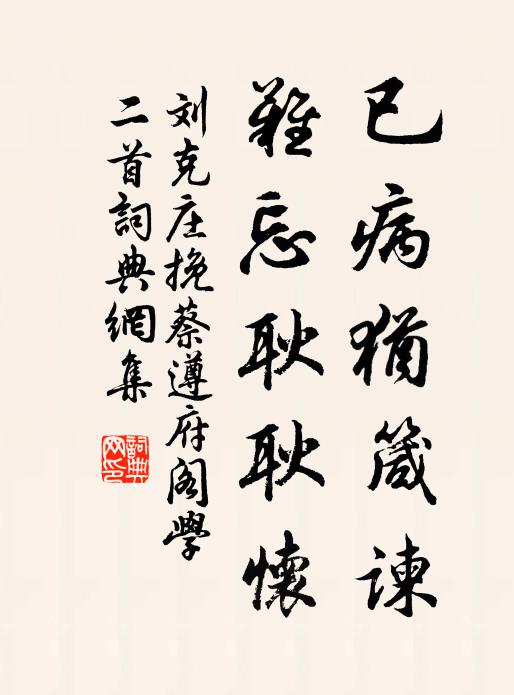 已病猶箴諫
難忘耿耿懷
刘克庄挽蔡遵府阁學
二首詞典網集
詞典網印